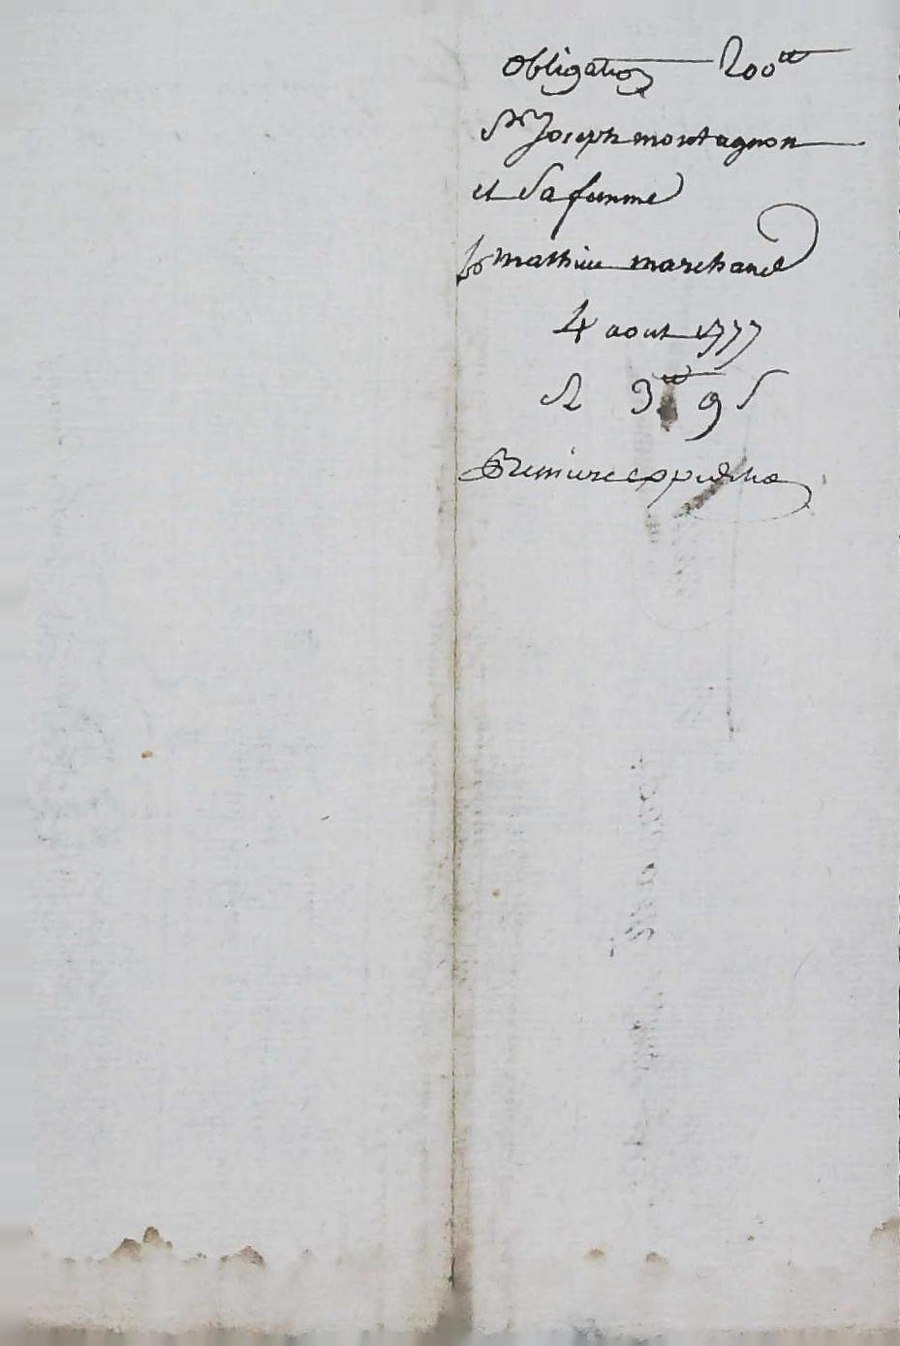 obligation 200tt
Sr Joseph montagnon
et Sa femme
mathieu marchand
4 aout 1777
R 3tt 9 s
Premiere expedition